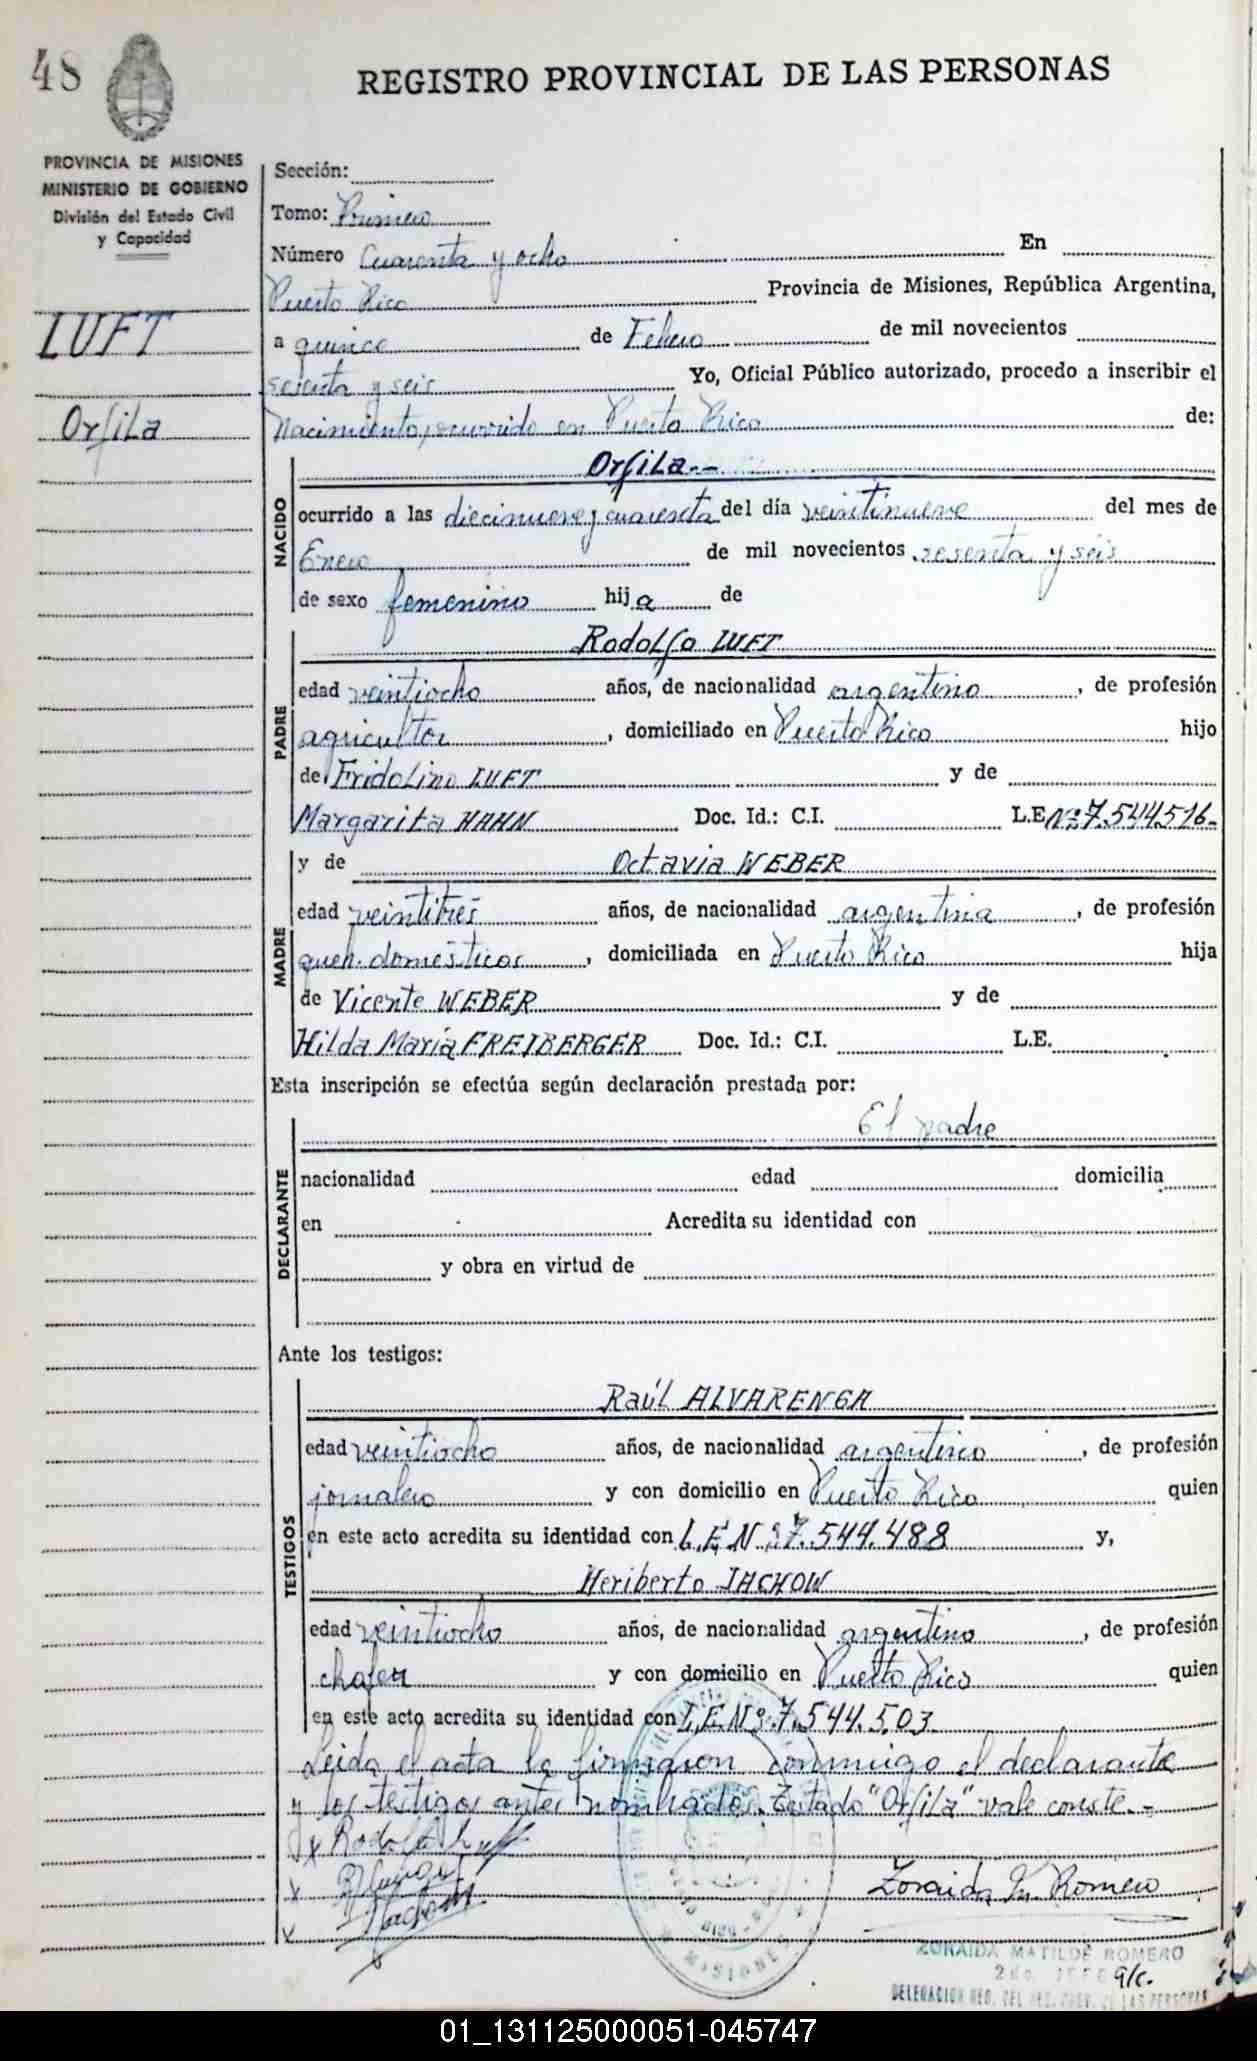 48
REGISTRO PROVINCIAL DE LAS PERSONAS
PROVINCIA DE MISIONES
MINISTERIO DE GOBIERNO
División del Estado Civil
y Capacidad
LUFT
Orfila
Sección:
Tomo: Primero
Número Cuarenta y ocho En
Puerto Rico Provincia de Misiones, República Argentina,
a quince de Febrero de mil novecientos
sesenta y seis Yo, Oficial Público autorizado, procedo a inscribir el
Nacimiento, ocurrido en Puerto Rico de:
NACIDO
Orfila.-
ocurrido a las diecinueve y cuarenta del día veintinueve del mes de
Enero de mil novecientos sesenta y seis
de sexo femenino hija de
PADRE
Rodolfo LUFT
edad veintiocho años, de nacionalidad argentino, de profesión
agricultor, domiciliado en Puerto Rico hijo
de Fridolino LUFT y de
Margarita HAHN Doc. Id.: C.I. L.E. Nº 7.544.516.-
MADRE
y de Octavia WEBER
edad veintitres años, de nacionalidad argentina, de profesión
queh. domésticos, domiciliada en Puerto Rico hija
de Vicente WEBER y de
Hilda María FREIBERGER Doc. Id.: C.I. L.E.
Esta inscripción se efectúa según declaración prestada por:
DECLARANTE
El padre
nacionalidad edad domicilia
en Acredita su identidad con
y obra en virtud de
Ante los testigos:
TESTIGOS
Raúl ALVARENGA
edad veintiocho años, de nacionalidad argentino, de profesión
jornalero y con domicilio en Puerto Rico quien
en este acto acredita su identidad con L.E.Nº 7.544.488 y,
Heriberto JACHOW
edad veintiocho años, de nacionalidad argentino, de profesión
chofer y con domicilio en Puerto Rico quien
en este acto acredita su identidad con L.E.Nº 7.544.503
Leida el acta la firmaron conmigo el declarante
y los testigos antes nombrados. Testado "Orfila" vale conste.-
x Rodolfo Luft
x
x Jachow
Zoraida M. Romero
ZORAIDA MATILDE ROMERO
2do. JEFE a/c.
DELEGACION REG. DEL REG. PROV. DE LAS PERSONAS
MISIONES
01_131125000051-045747